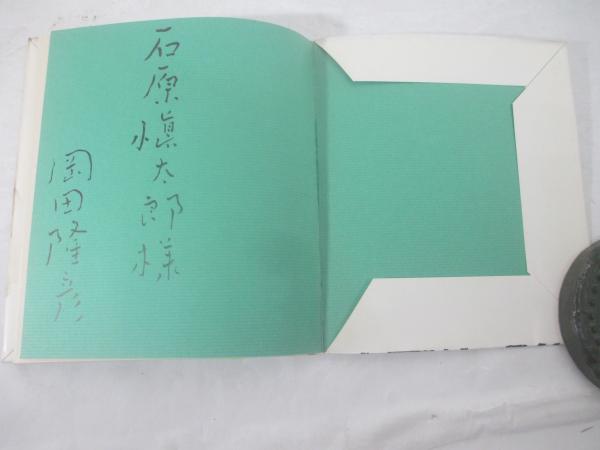 石原慎太郎様
岡田隆彦